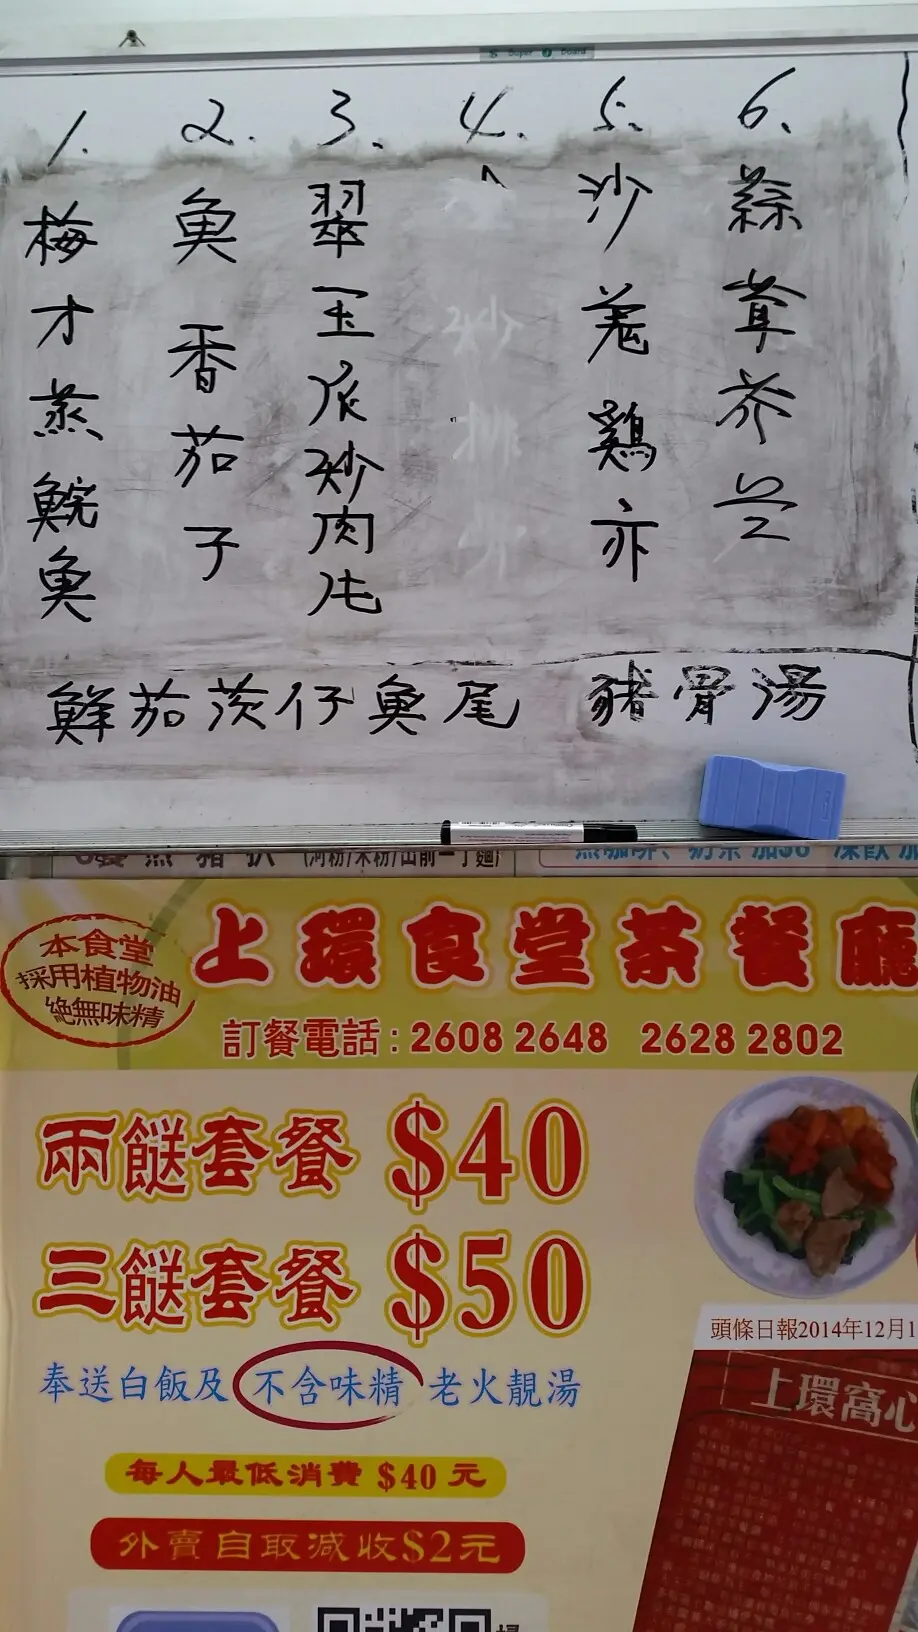 Super Board
1.
梅才蒸鯇魚
2.
魚香茄子
3.
翠玉瓜炒肉
4.
炒排
5.
沙羗鷄亦
6.
蒜茸芥兰
鮮茄茨仔魚尾
豬骨湯
本食堂
採用植物油
絕無味精
上環食堂茶餐廳
訂餐電話:2608 2648 2628 2802
兩餸套餐 $40
三餸套餐 $50
奉送白飯及不含味精老火靚湯
每人最低消費 $40 元
外賣自取減收$2元
頭條日報2014年12月1
上環窩心